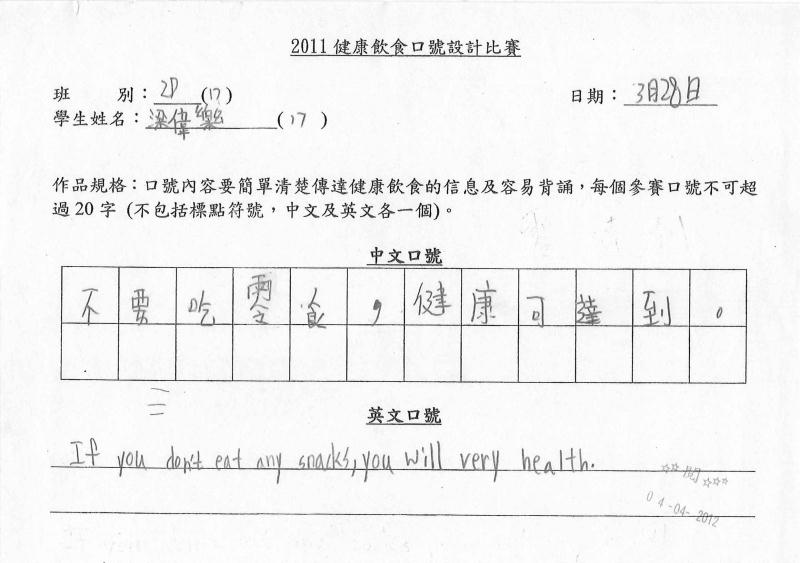 2011 健康飲食口號設計比賽
班 別：2D (17)
日期：3月28日
學生姓名：梁偉樂 (17)
作品規格：口號內容要簡單清楚傳達健康飲食的信息及容易背誦，每個參賽口號不可超
過 20 字 (不包括標點符號，中文及英文各一個)。
中文口號
不要吃零食，健康可達到。
英文口號
If you don't eat any snacks, you will very health.
☆☆ 閱 ☆☆☆
04-04-2012